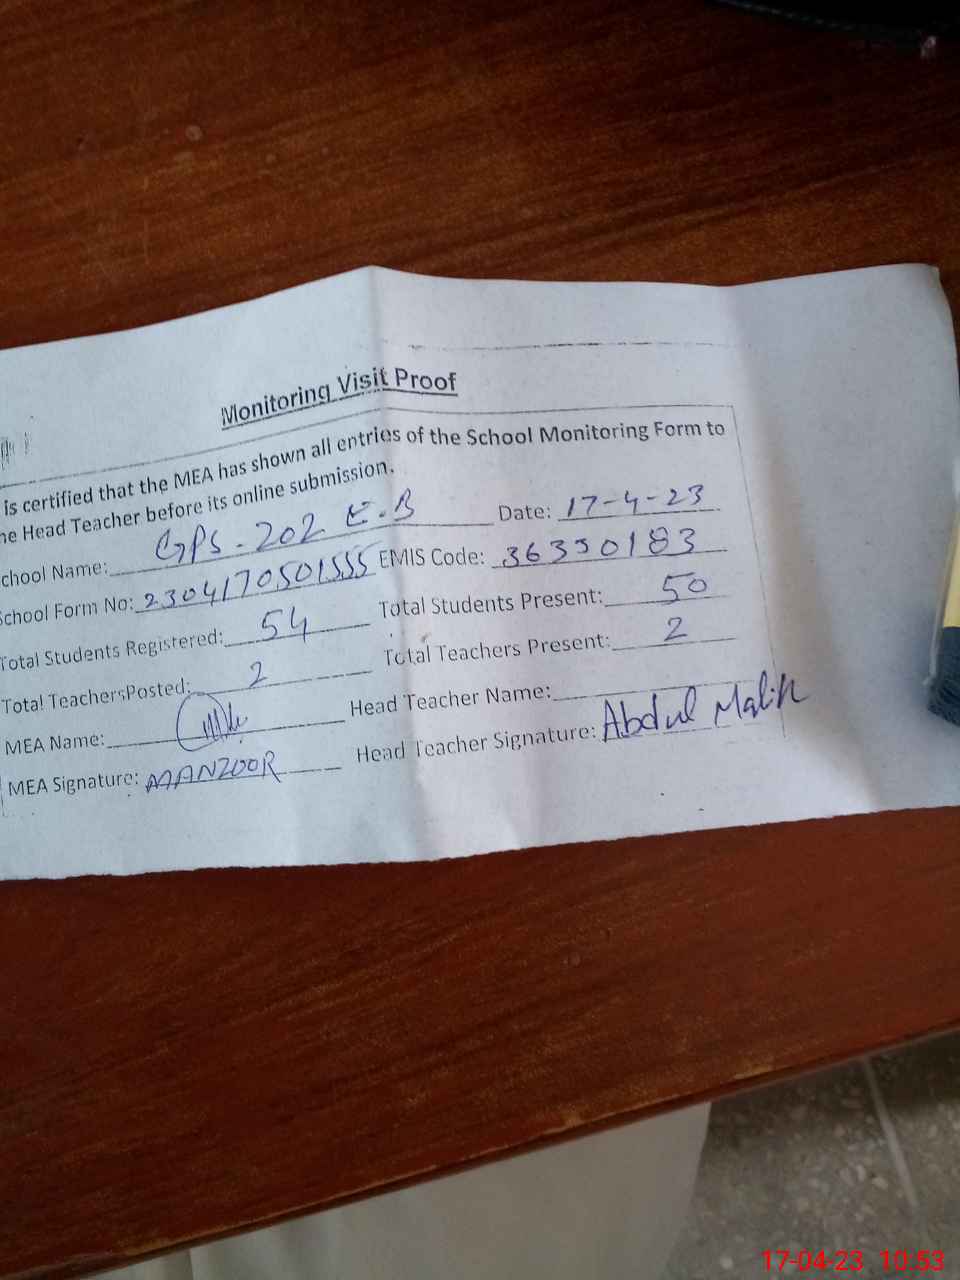 Monitoring Visit Proof
is certified that the MEA has shown all entries of the School Monitoring Form to
he Head Teacher before its online submission.
chool Name: GPS-202 E.B Date: 17-4-23
School Form No: 2304170501555 EMIS Code: 36330183
Total Students Registered: 54 Total Students Present: 50
Total TeachersPosted: 2 Total Teachers Present: 2
MEA Name: Head Teacher Name:
MEA Signature: MANZOOR Head Teacher Signature: Abdul Malik
17-04-23 10:53